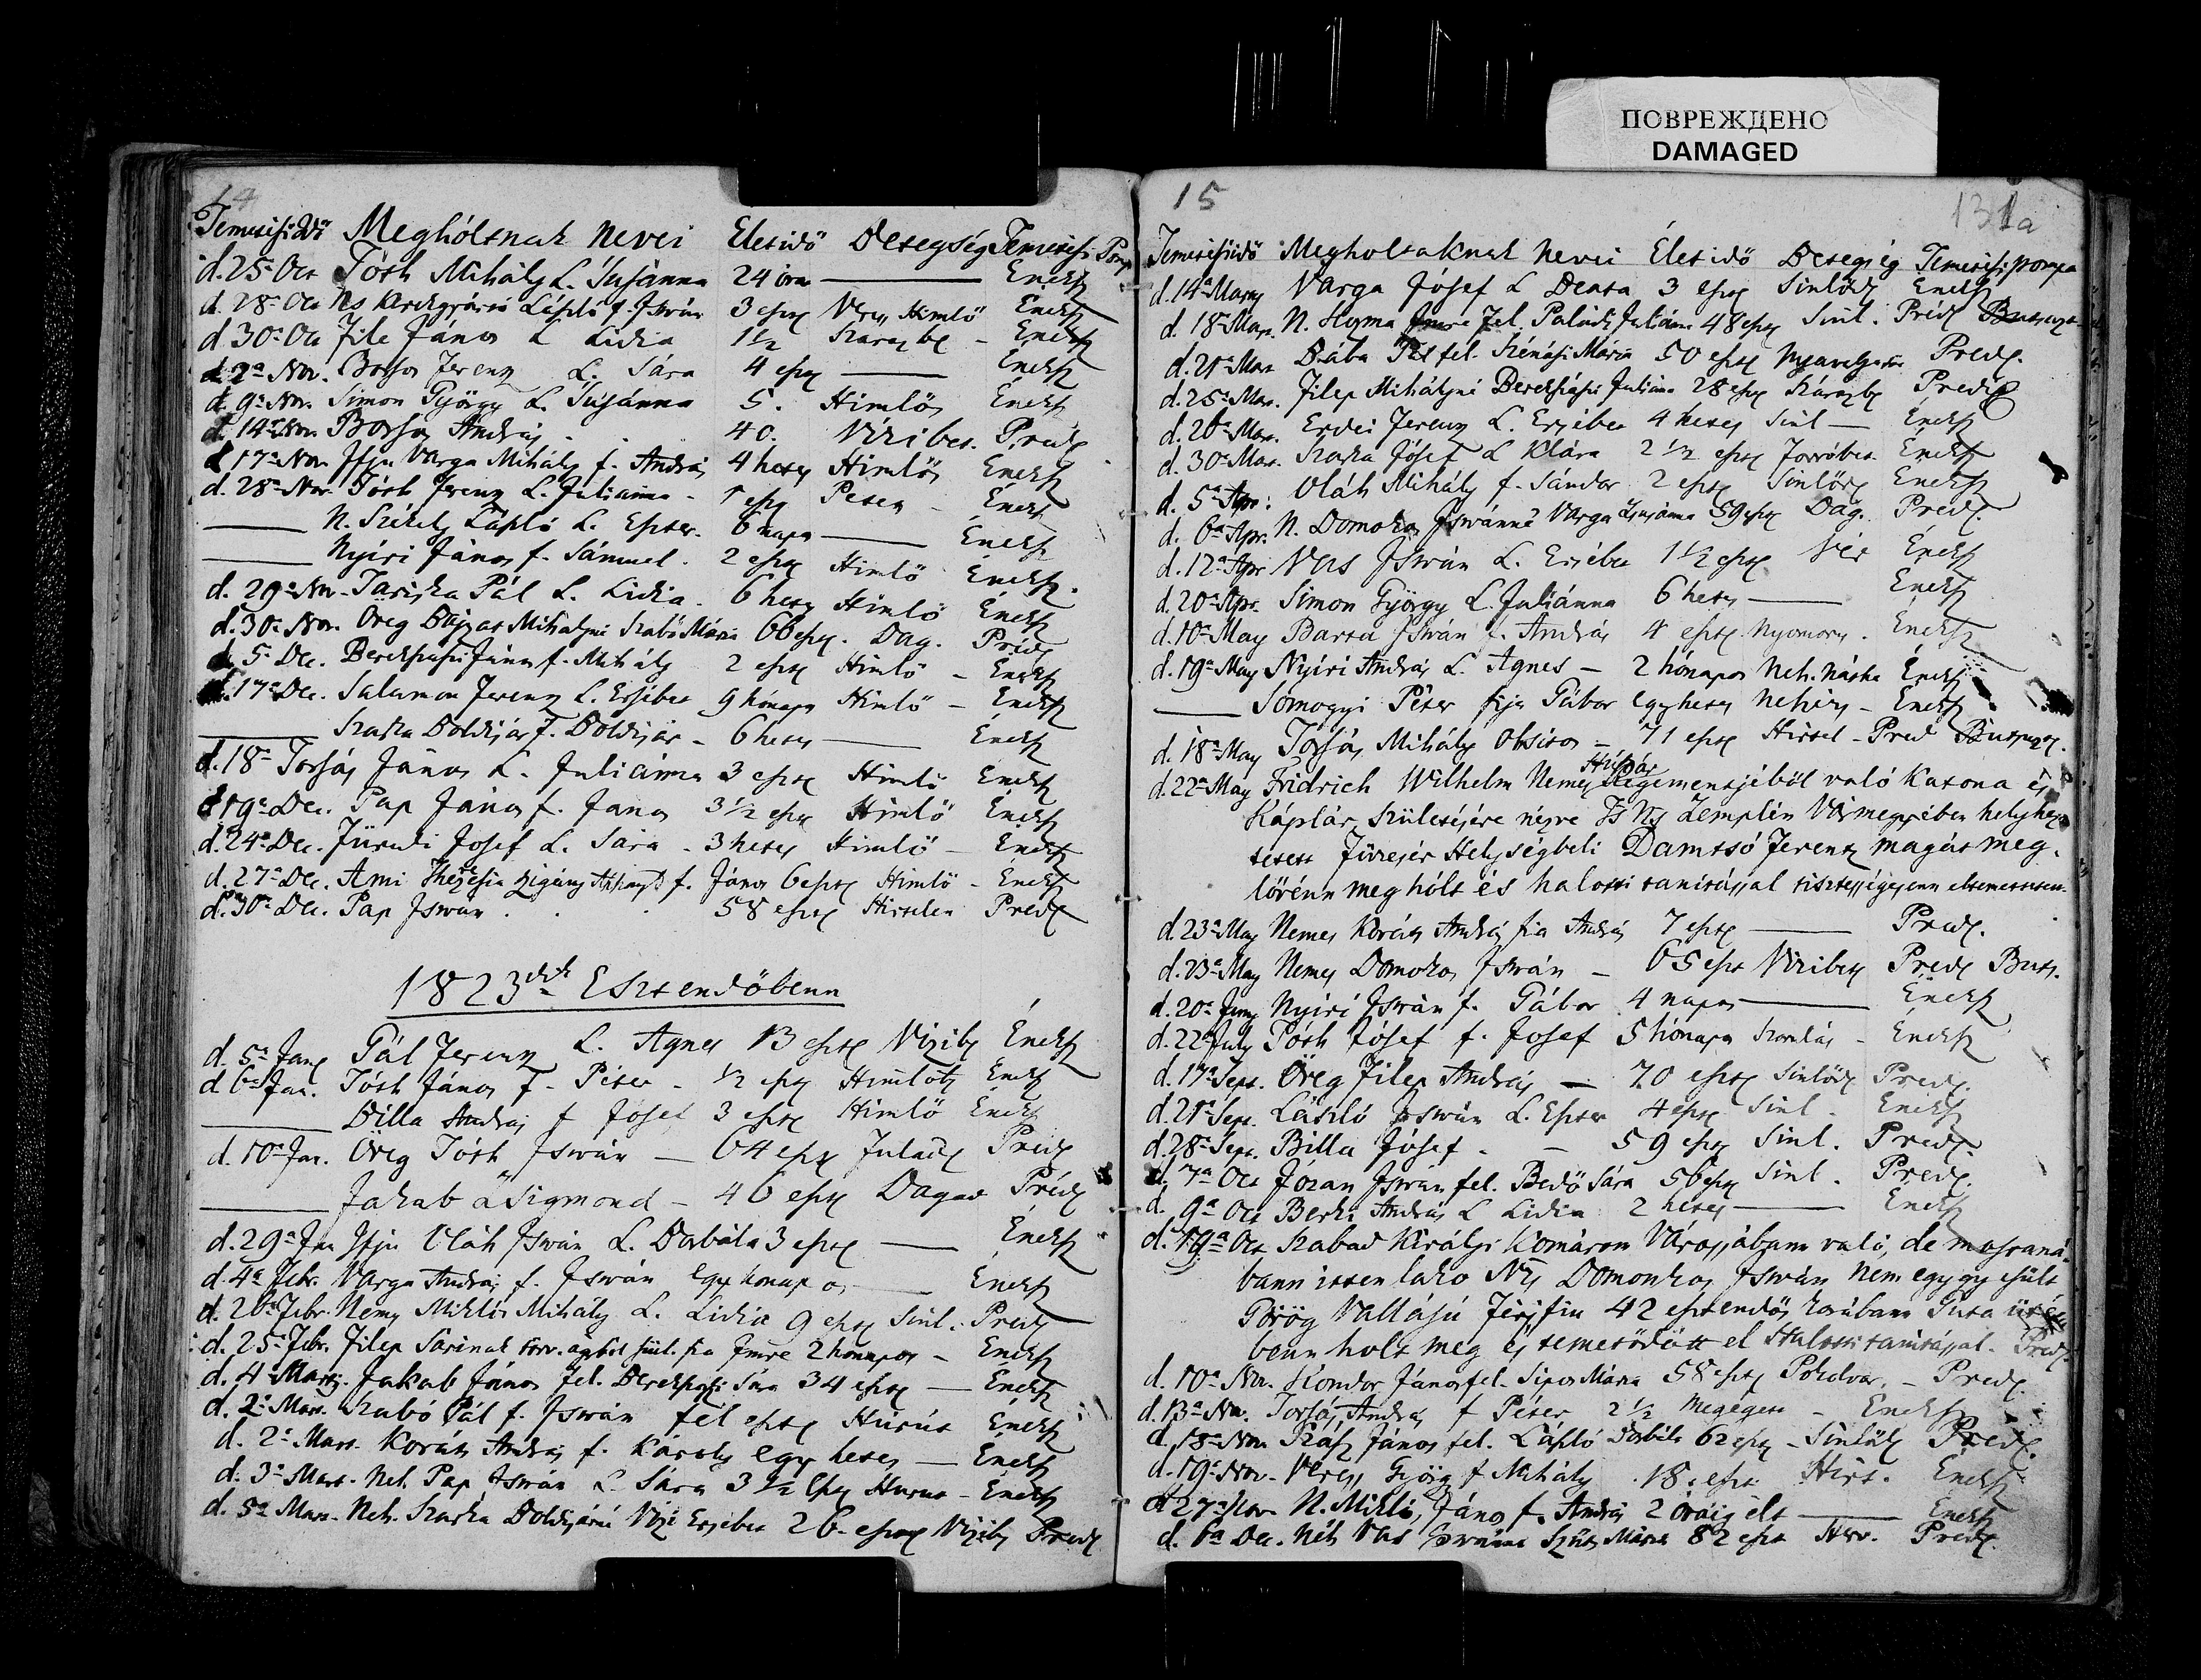 ПОВРЕЖДЕНО
DAMAGED
14
Temetési Idő Meghóltnak Nevei Életidő Betegség Temetési Pomp
d. 25a Oct Tóth Mihály L. Susánna 24 óra — Énekk
d. 28a Oct László f. István 3 eszt Veress Himlő Énekk
d. 30a Oct File János L Lidia 1½ Szarazbet - Énekk
d. 2a Nov. Borsos Ferentz L. Sára 4 eszt — Énekk
d. 9a Nov. Simon György L. Susánna 5. Himlős Énekk
d. 14a Nov. Borsos András 40. Vizibet. Préd.
d. 17a Nov. Ifju Varga Mihály f. András 4 hetes Himlős Énekk
d. 28a Nov. Tóth Ferentz L. Juliánna - 1 eszt Petets - Énekk
— N. Székely László L. Eszter. 6 napos — Énekk
— Nyíri János f. Sámuel. 2 eszt Himlő Énekk.
d. 29a Nov. Tariska Pál L. Lidia. 6 hetes Himlő Énekk
d. 30a Nov. Öreg Mihályné Szabó Mária 66 eszt. Dag. Préd
d. 5a Dec. János f. Mihály 2 eszt Himlő - Énekk
d. 17a Dec. Salamon Ferentz L. Ersébet 9 hónapos Himlő - Énekk
— Szarka Boldisár f. Boldisár - 6 hetes — Énekk
d. 18a János L. Juliánna 3 eszt Himlő Énekk
d. 19a Dec. Pap János f. János 3½ eszt Himlő Énekk
d. 24a Dec. Josef L. Sára - 3 hetes Himlő — Énekk
d. 27a Dec. Ami f. János 6 eszt Himlő - Énekk
d. 30a Dec. Pap István . . . 58 eszt Hirtelen Préd
1823dik Esztendőbenn
d. 5a Jan Pál Ferentz L. Agnes 13 eszt Vizibet Énekk
d. 6a Jan. Tóth János f. Péter - ½ eszt Himlőb Énekk
— Billa András f Josef 3 eszt Himlő Énekk
d. 10a Jan. Öreg Tóth István — 64 eszt Préd
— Jakab Sigmond - 46 eszt Dagad Préd
d. 29a Jan Ifju Oláh István L. Borbála 3 eszt — Énekk
d. 4a Febr. Varga András f. István egy hónapos — Énekk
d. 20a Febr. Nemes Miklós Mihály L. Lidia 9 eszt Sinl. Préd
d. 25a Febr. Filep Sárának fia Imre 2 hónapos - Énekk
d. 4a Martz. Jakab János fel. Sára 34 eszt — Énekk
d. 2a Mart. Szabó Pál f. István fél eszt Hurut Énekk
d. 2a Mart. Korács András f. Károly egy hetes — Énekk
d. 3a Mart. Neh. Pap István L. Sára 3½ eszt Hurut - Énekk
d. 5a Mart. Neh. Szarka Boldisárné Ersébet 26 eszt Vizibet Préd
15
131a
Temetési idő Megholtaknak Nevei Életidő Betegség Temetési pompa
d. 14a Marty Varga Jósef L 3 eszt Sinlőd Énekk
d. 18a Mart. N. Imre fel. Juliánna 48 eszt Sinl. Préd
d. 21a Mart Bába Pál fel. Szénási Mária 50 eszt Préd.
d. 25a Mar. Filep Mihályné Juliána 28 eszt Szárazbet Préd
d. 26a Mar. Erdei Ferentz L. Ersébet 4 hetes Sinl — Énekk
d. 30a Mar. Szarka Jósef L Klára 2½ eszt Forróbet. Énekk
d. 5a Apr: Oláh Mihály f. Sándor 2 eszt Sinlőd Énekk
d. 6a Apr. N. Domokos Istvánné Varga Susánna 59 eszt Dag. Préd.
d. 12a Apr Vas István L. Ersébet 1½ eszt Énekk
d. 20a Apr. Simon György L. Juliánna 6 hetes — Énekk
d. 10a May Barta István f. András 4 eszt. Nyomory. Énekk
d. 19a May Nyíri András L. Agnes — 2 hónapos Neh. nátha Énekk
— Somogyi Péter fija Gábor egyhetes nehéz - Énekk
d. 18a May Mihály - 71 eszt Hirtel - Préd
d. 22a May Fridrich Wilhelm Nemes Huszár Regementjéből való Katona és
Káplár, születésére nézve Ts Ns Zemplén Vármegyében helyhez
tetett Helységbeli Damtsó Ferentz magát meg-
lövénn meghólt és halotti tanitással tisztességesenn eltemettetett
d. 23a May Nemes Korács András fia András 7 eszt — Préd.
d. 23a May Nemes Domokos István — 65 eszt Vizibet Préd Buts.
d. 20a Juny Nyíri István f. Gábor 4 napos — Énekk
d. 22a July Tóth Jósef f. Josef 5 hónapos - Énekk
d. 17a Sept. Öreg Filep András — 70 eszt Sinlőd Préd.
d. 21a Sept. László István L. Eszter 4 eszt Sinl. Énekk
d. 28a Sept. Billa Jósef - — 59 eszt Sinl. Préd.
d. 7a Oct István fel. Bedő Sára 56 eszt Sinl. Préd.
d. 9a Oct Berki András L Lidia 2 hetes — Énekk
d. 19a Oct Szabad Királyi Komárom Várossábann való, de mostaná-
bann itten lakó Ns Domonkos István Nem egygyesült
Görög Vallású Férjfiu 42 esztendős korábann Guta ütés
benn holt meg és temetődött el Halotti tanitással. Préd.
d. 10a Nov. Kondor János fel. Sipos Mária 58 eszt Pokolvar. - Préd.
d. 13a Nov. András f Péter 2½ Megégett - Énekk
d. 18a Nov. János fel. László Borbála 62 eszt - Sinlőd Préd.
d. 19a Nov. Veress György f Mihály 18. eszt Hirt. Énekk
d. 27a Nov N. Mikló, János f. András 2 óráig élt — Énekk
d. 6a Dec. Néh Vas Istvánné Szűts Mária 82 eszt Préd.